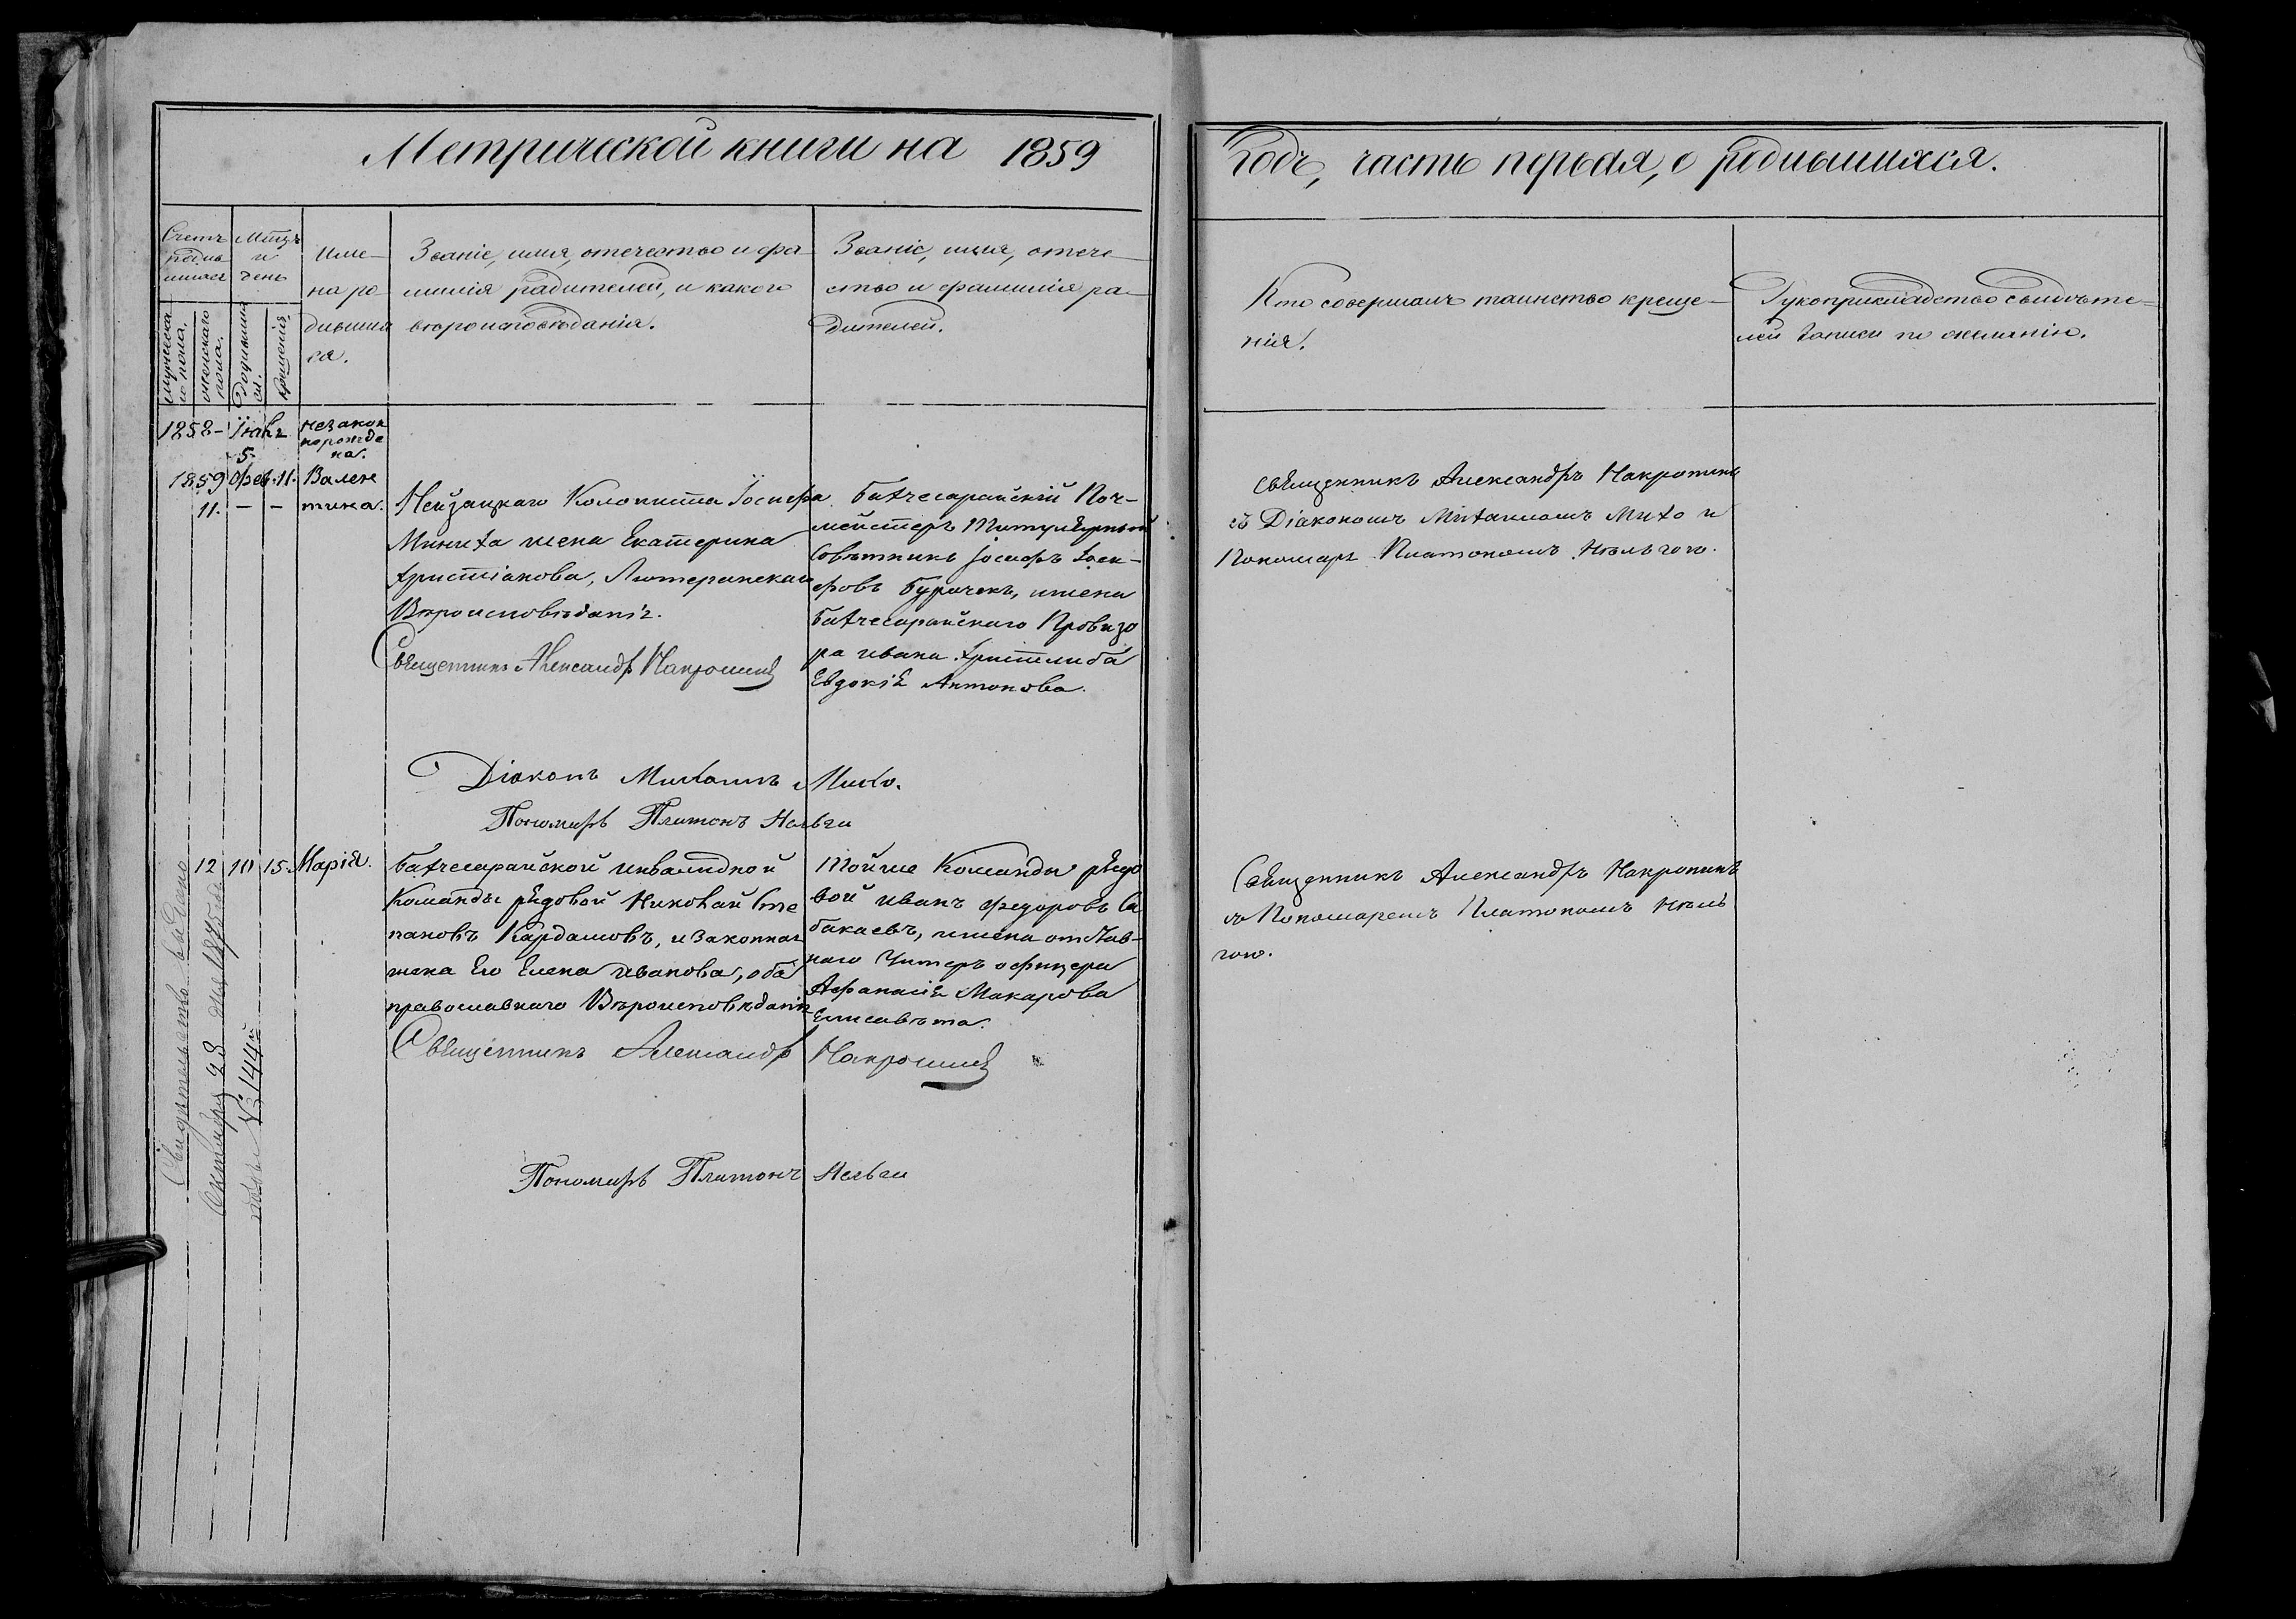 Метрической книги на 1859
Годъ, часть первая, о родившихся.
Счетъ
родив
шихся
Мѣсяцъ
и
день
мужеска
го пола.
женскаго
пола.
Рожденія
Крещенія.
Име-
на ро
дивших
ся.
Званіе, имя, отечество и фа-
милія родителей, и какого
вѣроисповѣданія.
Званіе, имя, отече-
ство и фамилія
Кто совершалъ таинство креще-
нія.
Рукоприкладство свидѣте-
лей записи по желанію.
1858-
5
незакон
норожде
на.
1859 Фев. 11.
11. - -
Вален
тина.
Нейзацкаго Колониста Іосифа
жена Екатерина
Христіанова, Лютеранскаго
Вѣроисповѣданія.
Священникъ Александръ
Бахчесарайскій Поч-
мейстеръ Титулярный
Совѣтникъ Іосифъ Іоси-
фовъ Бурачекъ, и жена
Бахчесарайскаго Провизо
ра Ивана Христлиба
Евдокія Антонова.
Священникъ Александръ
съ Діакономъ Михаиломъ Михо и
Пономаремъ Платономъ
Діаконъ Михаилъ Михо.
Пономарь Платонъ
12 10 15. Марія.
Бахчесарайской инвалидной
Команды рядовой Николай Сте
пановъ Кардашовъ, и законная
жена Его Елена Иванова, оба
православнаго Вѣроисповѣданія
Священникъ Александръ
Тойже Команды рядо
вой Иванъ Федоровъ Са
бакаевъ, и жена отстав-
наго Унтеръ офицера
Афанасія Макарова
Елисавѣта.
Священникъ Александръ
съ Пономаремъ Платономъ
Пономарь Платонъ
Свидѣтельство выдано
Октября 28 дня 1875 года
№ 144й